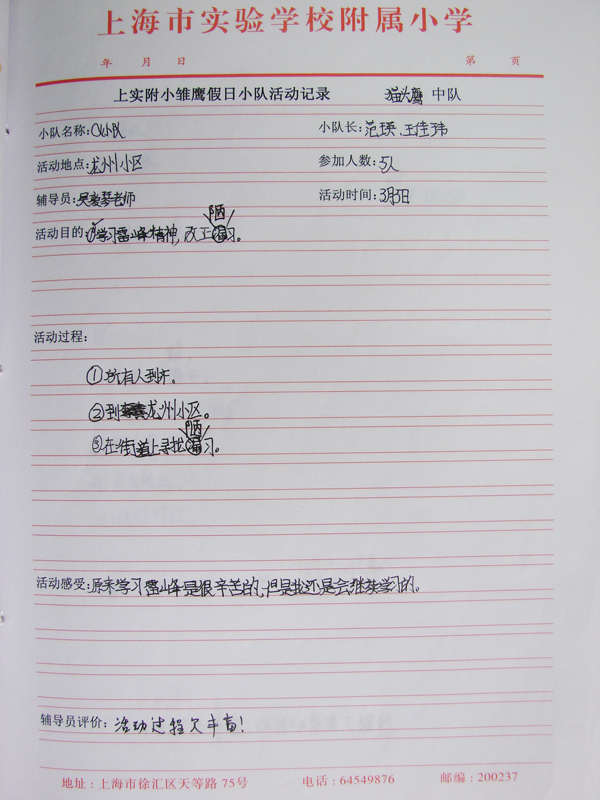 上海市实验学校附属小学
年 月 日 第 页
上实附小雏鹰假日小队活动记录 猫头鹰 中队
小队名称: 小队 小队长: 范瑛、王佳玮
活动地点: 龙州小区 参加人数: 5人
辅导员: 吴爱琴老师 活动时间: 3月5日
陋
活动目的: 学习雷峰精神,改正习。
活动过程:
①所有人到齐。
②到龙州小区。
陋
③在街道上寻找习。
活动感受: 原来学习雷峰是很辛苦的,但是我还是会继续学习的。
辅导员评价: 活动过程欠丰富!
地址:上海市徐汇区天等路 75号 电话:64549876 邮编:200237